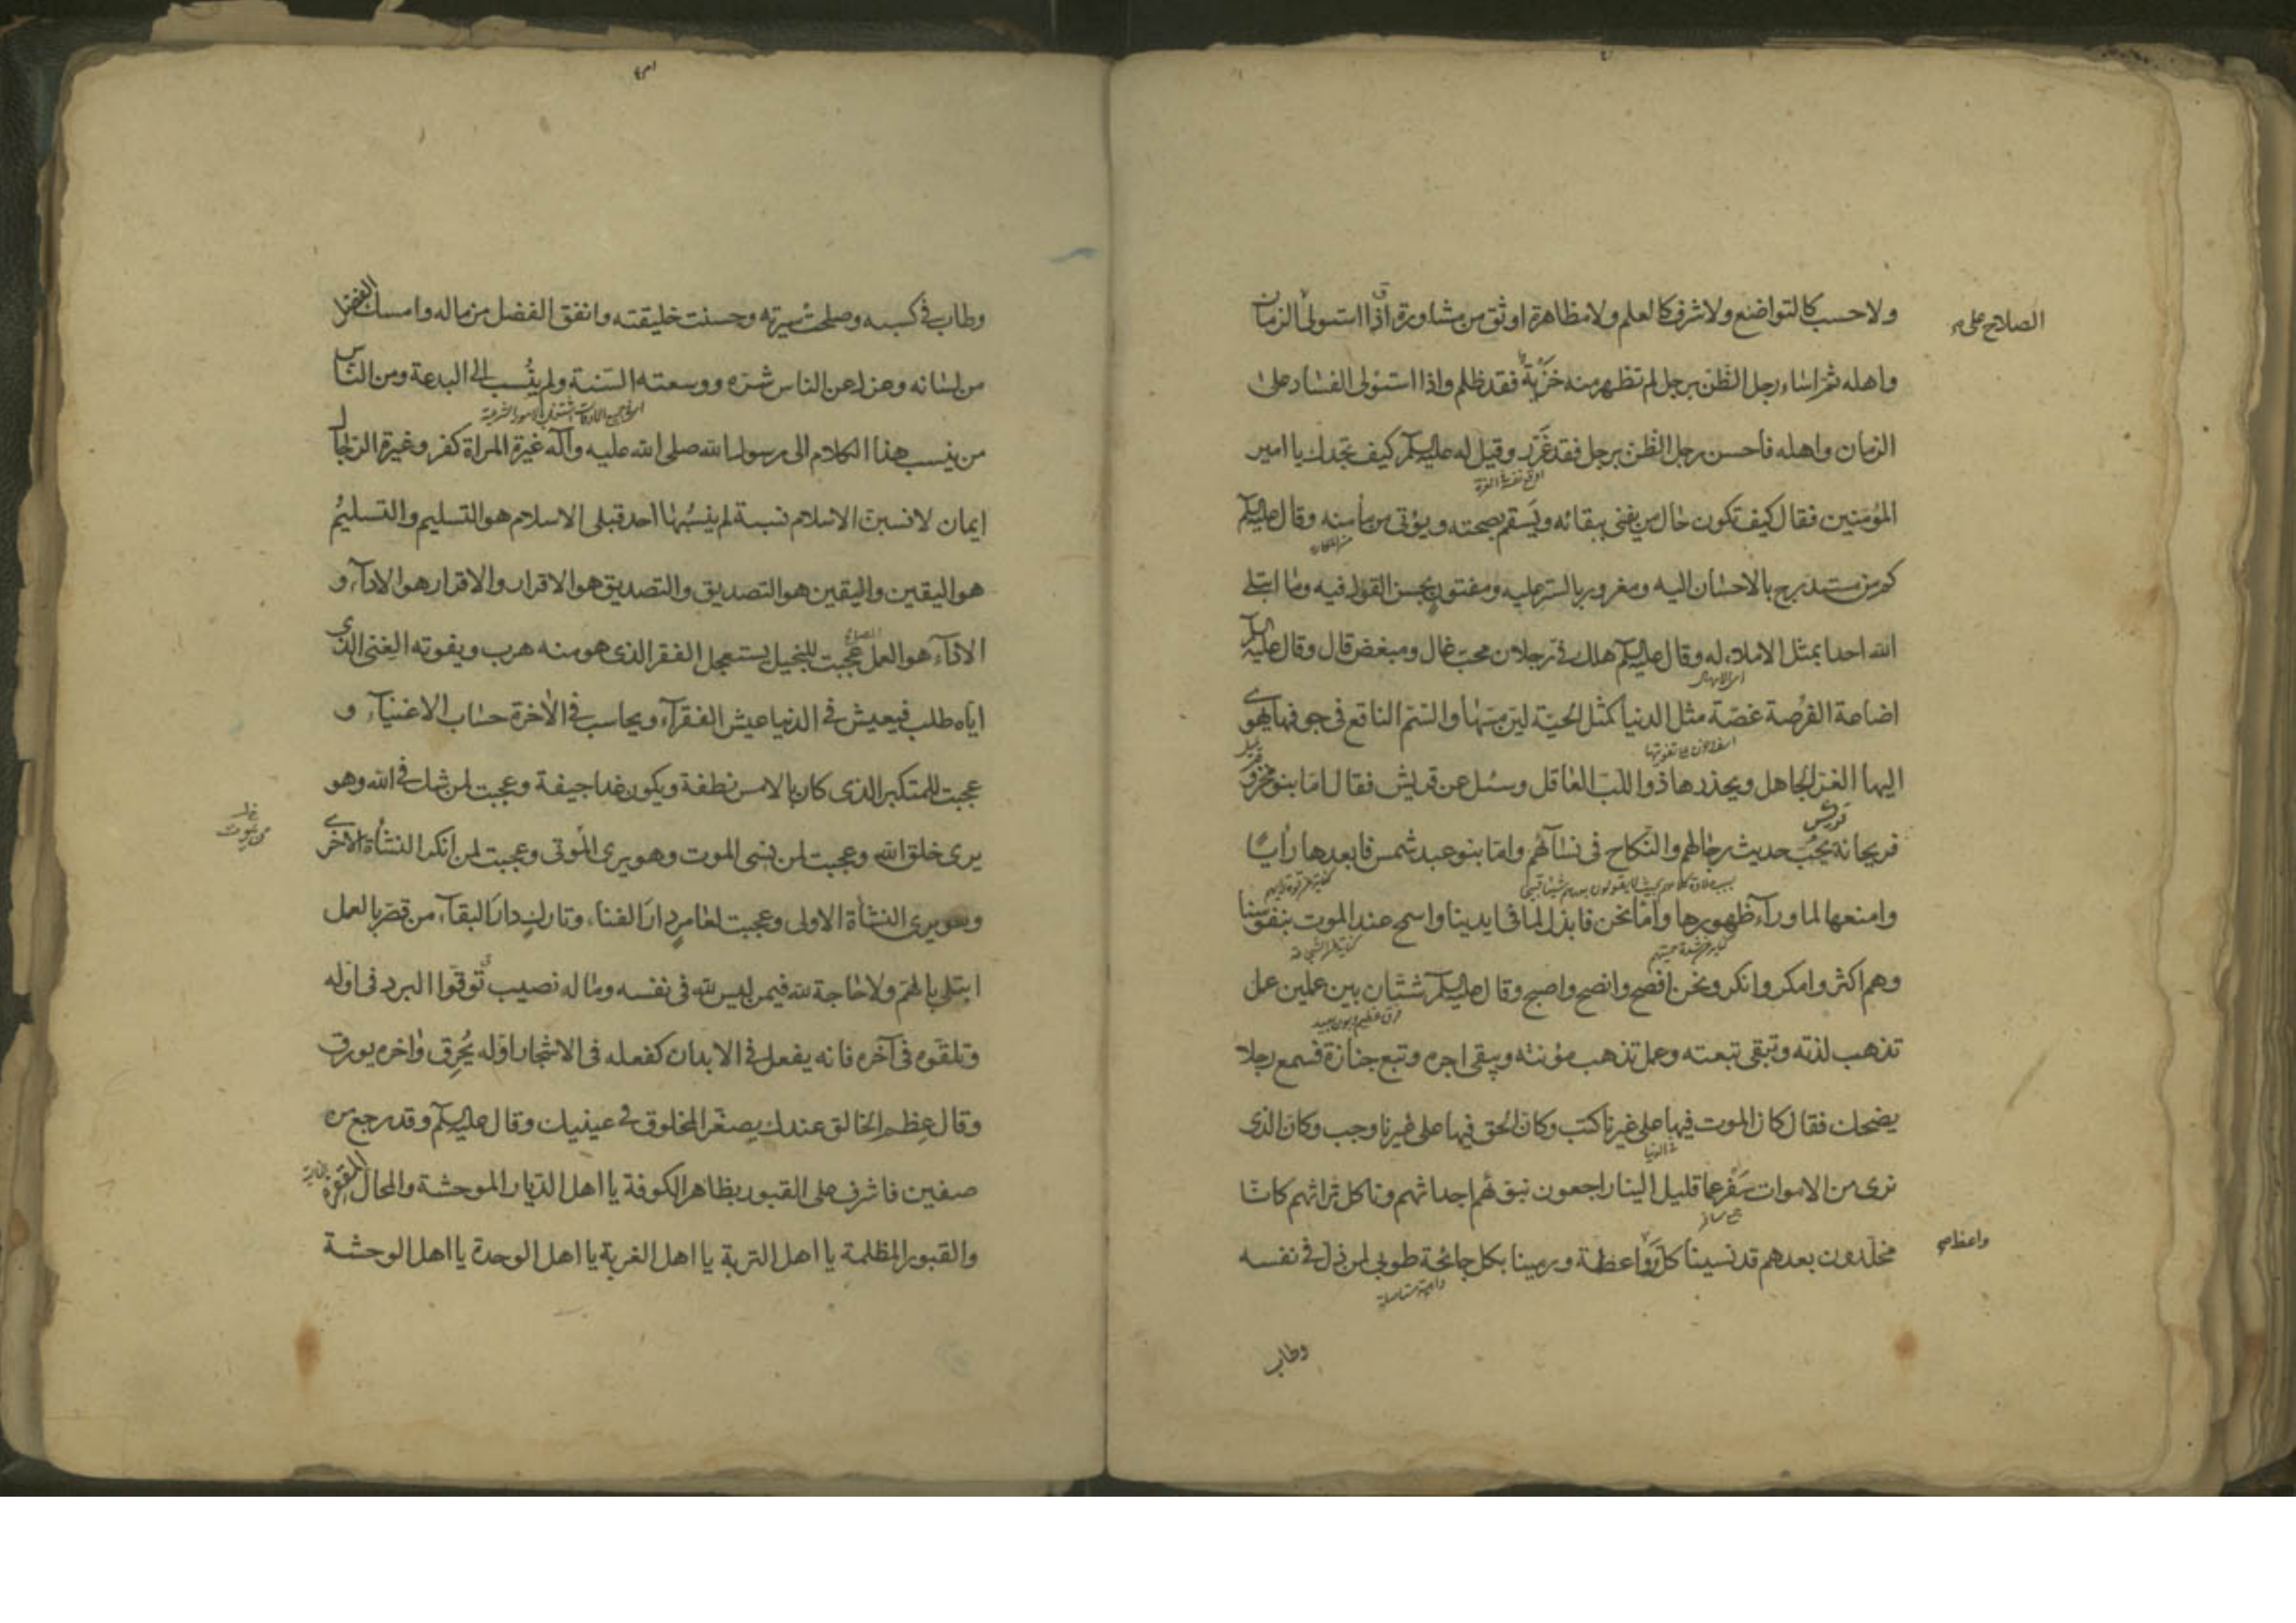 ولا حسب كالتواضع ولا شرف كالعلم ولا مظاهرة اوثق من مشاورة اذا استولى الزمان
الصلاح على
واهله ثم اساء رجل الظن برجل لم تظهر منه خزية فقد ظلم واذا استولى الفساد على
الزمان واهله فاحسن رجل الظن برجل فقد غرر وقيل له عليه السلم كيف تجدك يا امير
المؤمنين فقال كيف تكون حال من يفنى ببقائه ويسقم بصحته ويؤتى من مأمنه وقال عليه السلم
كم من مستدرج بالاحسان اليه ومغرور بالستر عليه ومفتون بحسن القول فيه وما ابتلى
الله احدا بمثل الاملاء له وقال عليه السلم هلك في رجلان محب غال ومبغض قال وقال عليه السلم
اضاعة الفرصة غصة مثل الدنيا كمثل الحية لين مسها والسم الناقع في جوفها يهوي
اليها الغر الجاهل ويحذرها ذو اللب العاقل وسئل عن قريش فقال اما بنو مخزوم
فريحانة قريش يحب حديث رجالهم والنكاح في نسائهم واما بنو عبد شمس فابعدها رأيا
وامنعها لما وراء ظهورها واما نحن فابذل لما في ايدينا واسمح عند الموت بنفوسنا
وهم اكثر وامكر وانكر ونحن افصح وانصح واصبح وقال عليه السلم شتان بين عملين عمل
فرق عظيم وبون بعيد
تذهب لذته وتبقى تبعته وعمل تذهب مؤنته ويبقى اجره وتبع جنازة فسمع رجلا
يضحك فقال كان الموت فيها على غيرنا كتب وكان الحق فيها على غيرنا وجب وكان الذى
نرى من الاموات سفر عما قليل الينا راجعون نبوئهم اجداثهم وناكل تراثهم كانا
مخلدون بعدهم قد نسينا كل واعظة ورمينا بكل جائحة طوبى لمن ذل في نفسه
وطاب
وطاب في كسبه وصلحت سيرته وحسنت خليقته وانفق الفضل من ماله وامسك الفضل
من لسانه وعزل عن الناس شره ووسعته السنة ولم ينسب الى البدعة ومن الناس
من ينسب هذا الكلام الى رسول الله صلى الله عليه وآله غيرة المراة كفر وغيرة الرجل
ايمان لانسبن الاسلام نسبة لم ينسبها احد قبلى الاسلام هو التسليم والتسليم
هو اليقين واليقين هو التصديق والتصديق هو الاقرار والاقرار هو الاداء و
الاداء هو العمل عجبت للبخيل يستعجل الفقر الذى هو منه هرب ويفوته الغنى الذى
اياه طلب فيعيش في الدنيا عيش الفقراء ويحاسب في الاخرة حساب الاغنياء و
عجبت للمتكبر الذى كان بالامس نطفة ويكون غدا جيفة وعجبت لمن شك في الله وهو
يرى خلق الله وعجبت لمن نسى الموت وهو يرى الموتى وعجبت لمن انكر النشأة الاخرى
وهو يرى النشأة الاولى وعجبت لعامر دار الفناء وتارك دار البقاء من قصر بالعمل
ابتلى بالهم ولا حاجة لله فيمن ليس لله في نفسه وماله نصيب توقوا البرد في اوله
وتلقوه في آخره فانه يفعل في الابدان كفعله في الاشجار اوله يحرق واخره يورق
وقال عظم الخالق عندك يصغر المخلوق في عينيك وقال عليه السلم وقد رجع من
صفين فاشرف على القبور بظاهر الكوفة يا اهل الديار الموحشة والمحال المقفرة
والقبور المظلمة يا اهل التربة يا اهل الغربة يا اهل الوحدة يا اهل الوحشة